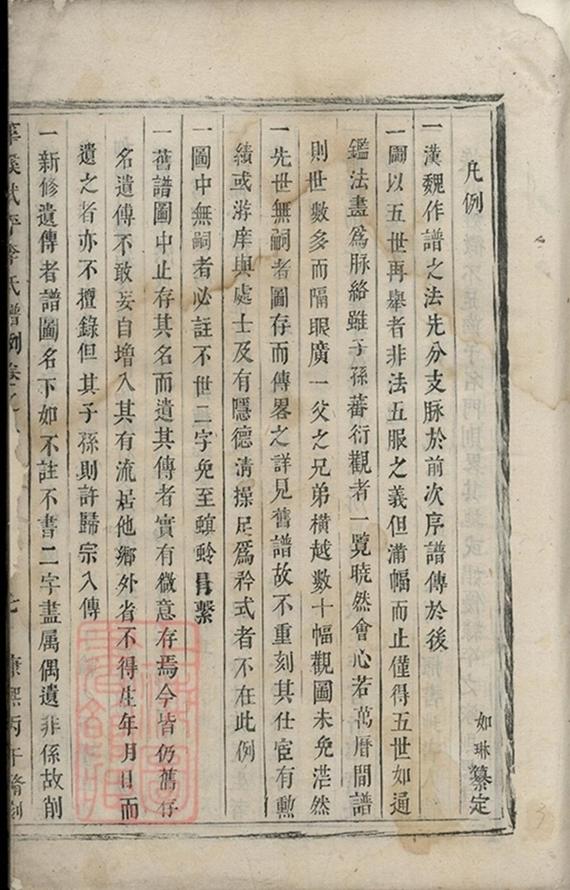 凡例
如琳纂定
一漢魏作譜之法先分支脉於前次序譜傳於後
一圖以五世再舉者非法五服之義但滿幅而止僅得五世如通
鑑法盡爲脉絡雖子孫蕃衍觀者一覽曉然會心若萬曆間譜
則世數多而隔眼廣一父之兄弟橫越數十幅觀圖未免茫然
一先世無嗣者圖存而傳畧之詳見舊譜故不重刻其仕宦有勲
績或游庠與處士及有隱德清操足爲矜式者不在此例
一圖中無嗣者必註不世二字免至螟蛉冐繫
一舊譜圖中止存其名而遺其傳者實有微意存焉今皆仍舊存
名遺傳不敢妄自增入其有流居他鄉外省不得生年月日而
遺之者亦不擅錄但其子孫則許歸宗入傳
一新修遺傳者譜圖名下如不註不書二字盡属偶遺非係故削
李氏譜例卷之
七
康熙丙午脩刻